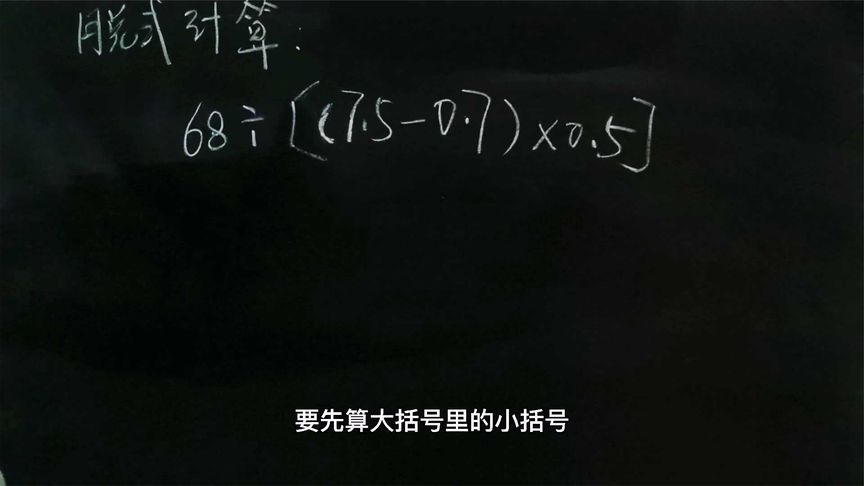 脱式计算:
68÷[(7.5-0.7)×0.5]
要先算大括号里的小括号